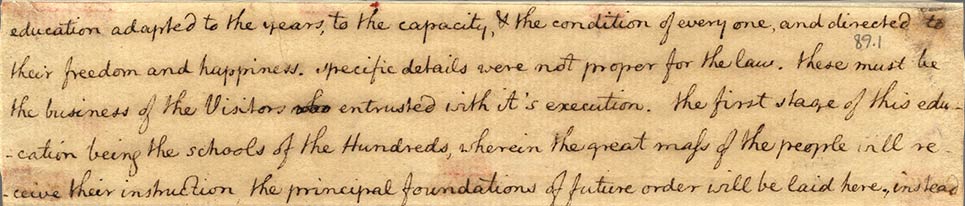 education adapted to the years, to the capacity, & the condition of every one, and directed to
89.1
their freedom and happiness. specific details were not proper for the law. these must be
the business of the Visitors who entrusted with it's execution. the first stage of this edu-
-cation being the schools of the Hundreds, wherein the great mass of the people will re-
-ceive their instruction the principal foundations of future order will be laid here., instead